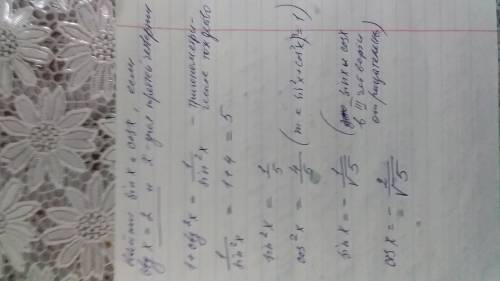 Найти sin x и cos x, если
ctg x = 2 и x угол третьей четверти
1 + ctg²x = 1/sin²x - тригонометри-
ческое тождество
1/sin²x = 1 + 4 = 5
sin²x = 1/5
cos²x = 4/5 (т.к sin²x + cos²x = 1)
sin x = - 1/√5 (sin x и cos x
в III четверти
отрицательны)
cos x = - 2/√5